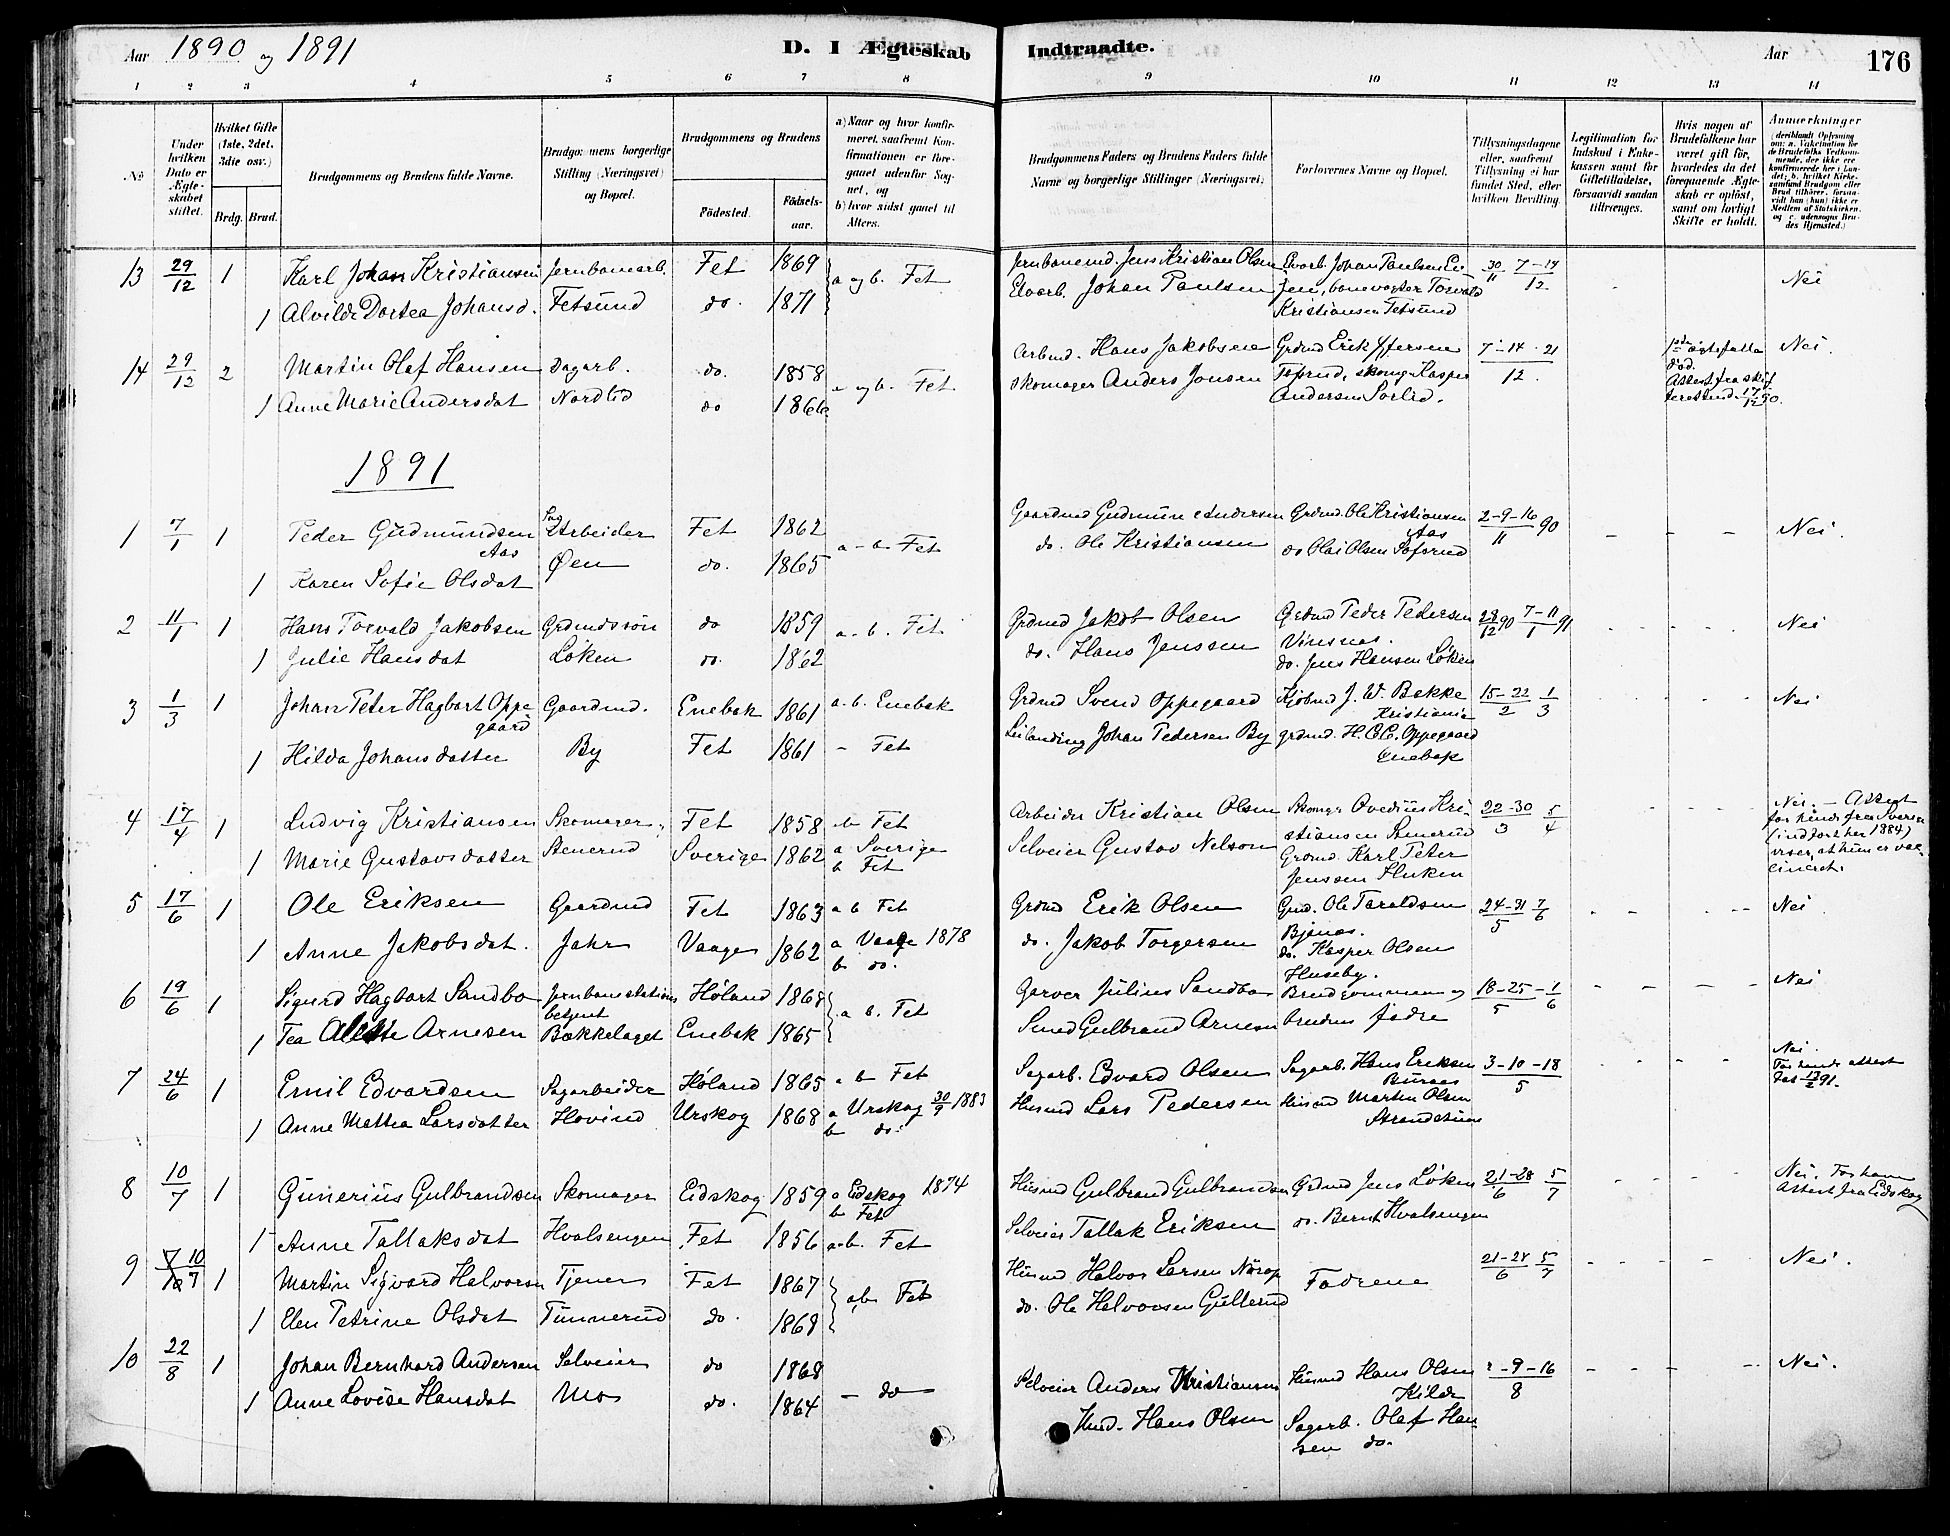 Aar 1890 og 1891
D. I Ægteskab Indtraadte.
Aar 176
1 2 3 4 5 6 7 8 9 10 11 12 13 14
No
Under hvilken Dato er Ægteskabet stiftet.
Hvilket Gifte (1ste, 2det, 3die osv.)
Brdg. Brud.
Brudgommens og Brudens fulde Navne.
Brudgommens borgerlige Stilling (Næringsvei) og Bopæl.
Brudgommens og Brudens
Fødested.
Fødselsaar.
a) Naar og hvor konfirmeret, saafremt Konfirmationen er foregaaet udenfor Sognet, og
b) hvor sidst gaaet til Alters.
Brudgommens Faders og Brudens Faders fulde Navne og borgerlige Stillinger (Næringsvei)
Forlovernes Navne og Bopæl.
Tillysningsdagene eller, saafremt Tillysning ei har fundet Sted, efter hvilken Bevilling.
Legitimation for Indskud i Enkekassen samt for Giftetilladelse, forsaavidt saadan tiltrænges.
Hvis nogen af Brudefolkene har været gift før, hvorledes da det foregaaende Ægteskab er opløst, samt om lovligt Skifte er holdt.
Anmærkninger (deriblandt Oplysning om: a. Vakcination for de Brudefolks Vedkommende, der ikke ere konfirmerede her i Landet; b. hvilket Kirkesamfund Brudgom eller Brud tilhører, forsaavidt han (hun) ikke er Medlem af Statskirken, og c. udensogns Brudes Hjemsted.)
13 29/12 1 Karl Johan Kristiansen Jernbanearb. Fet 1869 a og b. Fet Jernbanemd. Jens Kristian Olsen Elvarb. Johan Paulsen 30/11 7-14/12 Nei
1 Alvilde Dortea Johansd. Fetsund do. 1871 Elvarb. Johan Paulsen Jen, banevogter Torvald
Kristiansen Fetsund
14 29/12 2 Martin Olaf Hansen Dagarb. do. 1858 a og b. Fet Arbmd. Hans Jakobsen Grdmd Erik Iffersen 7-14-21/12. død. Nei.
1 Anne Marie Andersdat Nordlid do 1866 Skomager Anders Jonsen Tofsrud, skomg. Kasper Attest fra skif
Andersen Sorlid. 17/12 90.
1891
1 7/1 1 Peder Gudmundsen Arbeider Fet 1862 a-b Fet Gaardmd Gudmun Andersen Grdmd. Ole Kristiansen 2-9-16/11 90 - - - Nei.
Aas Øen do. Ole Kristiansen Aas
1 Karen Sofie Olsdat do. 1865 do Olai Olsen Tofsrud
2 11/1 1 Hans Torvald Jakobsen Grdmdssøn do 1859 a-b. Fet Grdmd Jakob Olsen Grdmd Peder Pedersen 28/12 90 7-11/1 91 Nei
1 Julie Hansdat Løken do. 1862 do. Hans Jenssen
do. Jens Hansen Løken
3 1/3 1 Johan Peter Hagbart Oppegaard Gaardmd. Enebak 1861 a-b. Enebak Grdmd Svend Oppegaard Kjøbmd J. W. Bakke 15-22/2 1/3 Nei
Kristiania
1 Hilda Johansdatter By Fet 1861 - Fet Leilending Johan Pedersen By grdmd. H. C. C. Oppegaard
Enebak
4 17/4 1 Ludvig Kristiansen Skomager, Fet 1858 ab Fet Arbeider Kristian Olsen Skomgr Ovedius Kri- 22-30/3 5/4 Nei. - Attest
1 Marie Gustavsdatter Stenerud Sverige 1862 a Sverige b Fet Selveier Gustav Nelson stiansen Stenerud for hende fra Sverige
Grdmd. Karl Peter (indført her 1884)
Jenssen viser, at hun er vaccineret.
5 17/6 1 Ole Eriksen Gaardmd Fet 1863 a b Fet Grdmd Erik Olsen Grmd. Ole Taraldsen 24-31/5 7/6 - - - Nei
1 Anne Jakobsdat. Jahr Vaage 1862 a Vaage 1878 b do. do. Jakob Torgersen Bjenas.
do. Kasper Olsen
Huseby.
6 19/6 1 Sigurd Hagbart Sandbo Jernbanestationsbetjent Høland 1868 a b. Fet Garver Julius Sandbo Brudgommen og 18-25/5 - 1/6 - - - Nei
1 Tea Alette Arnesen Bækkelaget Enebak 1865 Smed Gulbrand Arnesen brudens fædre
7 24/6 1 Emil Edvardsen Sagarbeider Høland 1865 a b Fet Sagarb. Edvard Olsen Sagarb. Hans Eriksen 3-10-18/5 - - - Nei.
Buraas For hende attest
1 Anne Mattea Larsdatter Hovind Urskog 1868 a Urskog 30/9 1883 b do. Husmd Lars Pedersen Husmd Martin Olsen
8 10/7 1 Gunerius Gulbrandsen Skomager Eidskog 1859 a Eidskog 1874 b Fet Husmd Gulbrand Gulbrandsen Grdmd Jens Løken 21-28/6 5/7 Nei. For ham
Attest fra Eidskog
1 Anne Tallaksdat Hvalsengen Fet 1856 a-b. Fet Selveier Tallak Eriksen do. Bernt Hvalsengen
9 10/7 1 Martin Sigvard Halvorsen Tjener Fet 1867 a,b Fet Husmd Halvor Larsen Fædrene 21-24/6 5/7 - - - Nei.
1 Elen Petrine Olsdat Tunnerud do. 1868 do. Ole Halvorsen Gullerud
10 22/8 1 Johan Bernhard Andersen Selveier do 1868 - do - Selveier Anders Kristiansen Husmd Hans Olsen 2-9-16/8 - - - - Nei.
1 Anne Lovise Hansdat Mo do. 1864 Hmd. Hans Olsen Kilde
Sagarb. Olaf Hansen do.